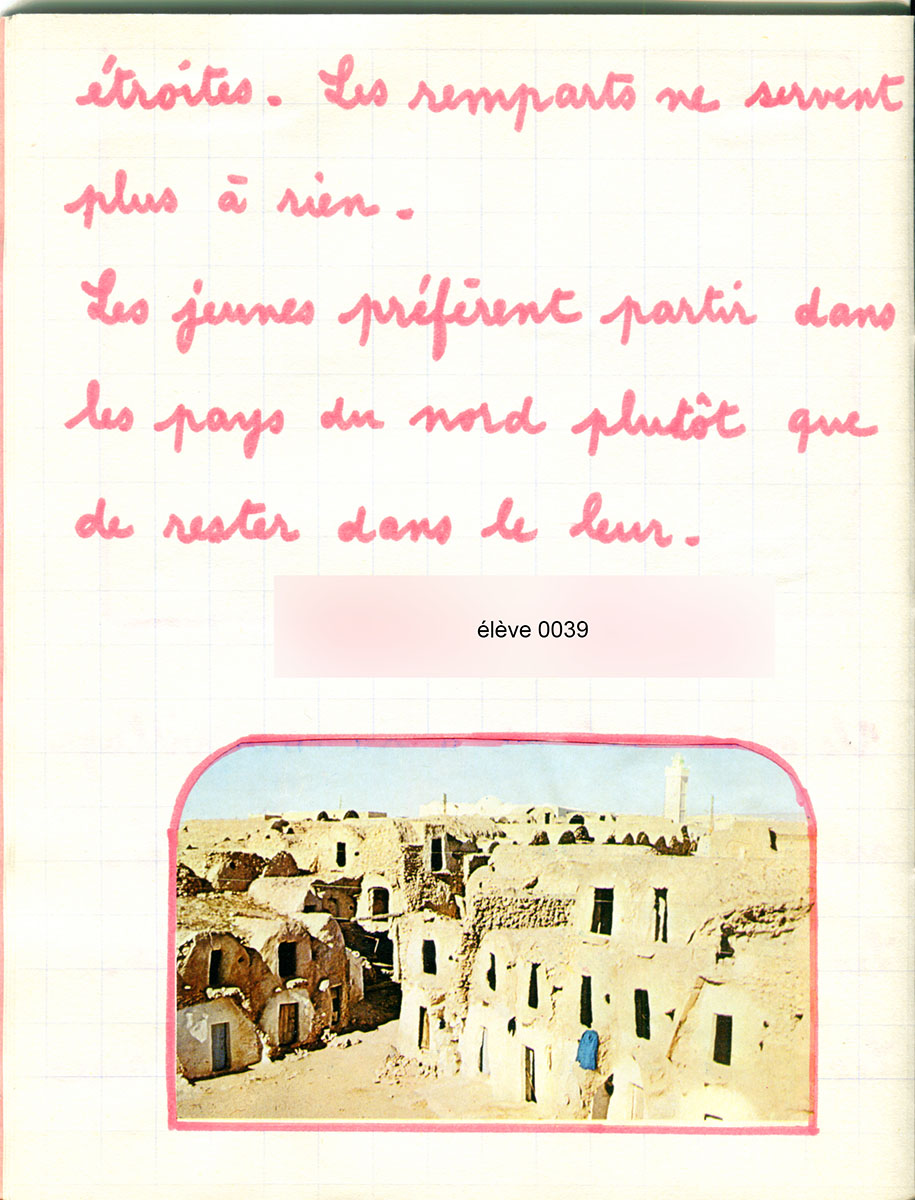 étroites. Les remparts ne servent
plus à rien.
Les jeunes préfèrent partir dans
les pays du nord plutôt que
de rester dans le leur.
élève 0039